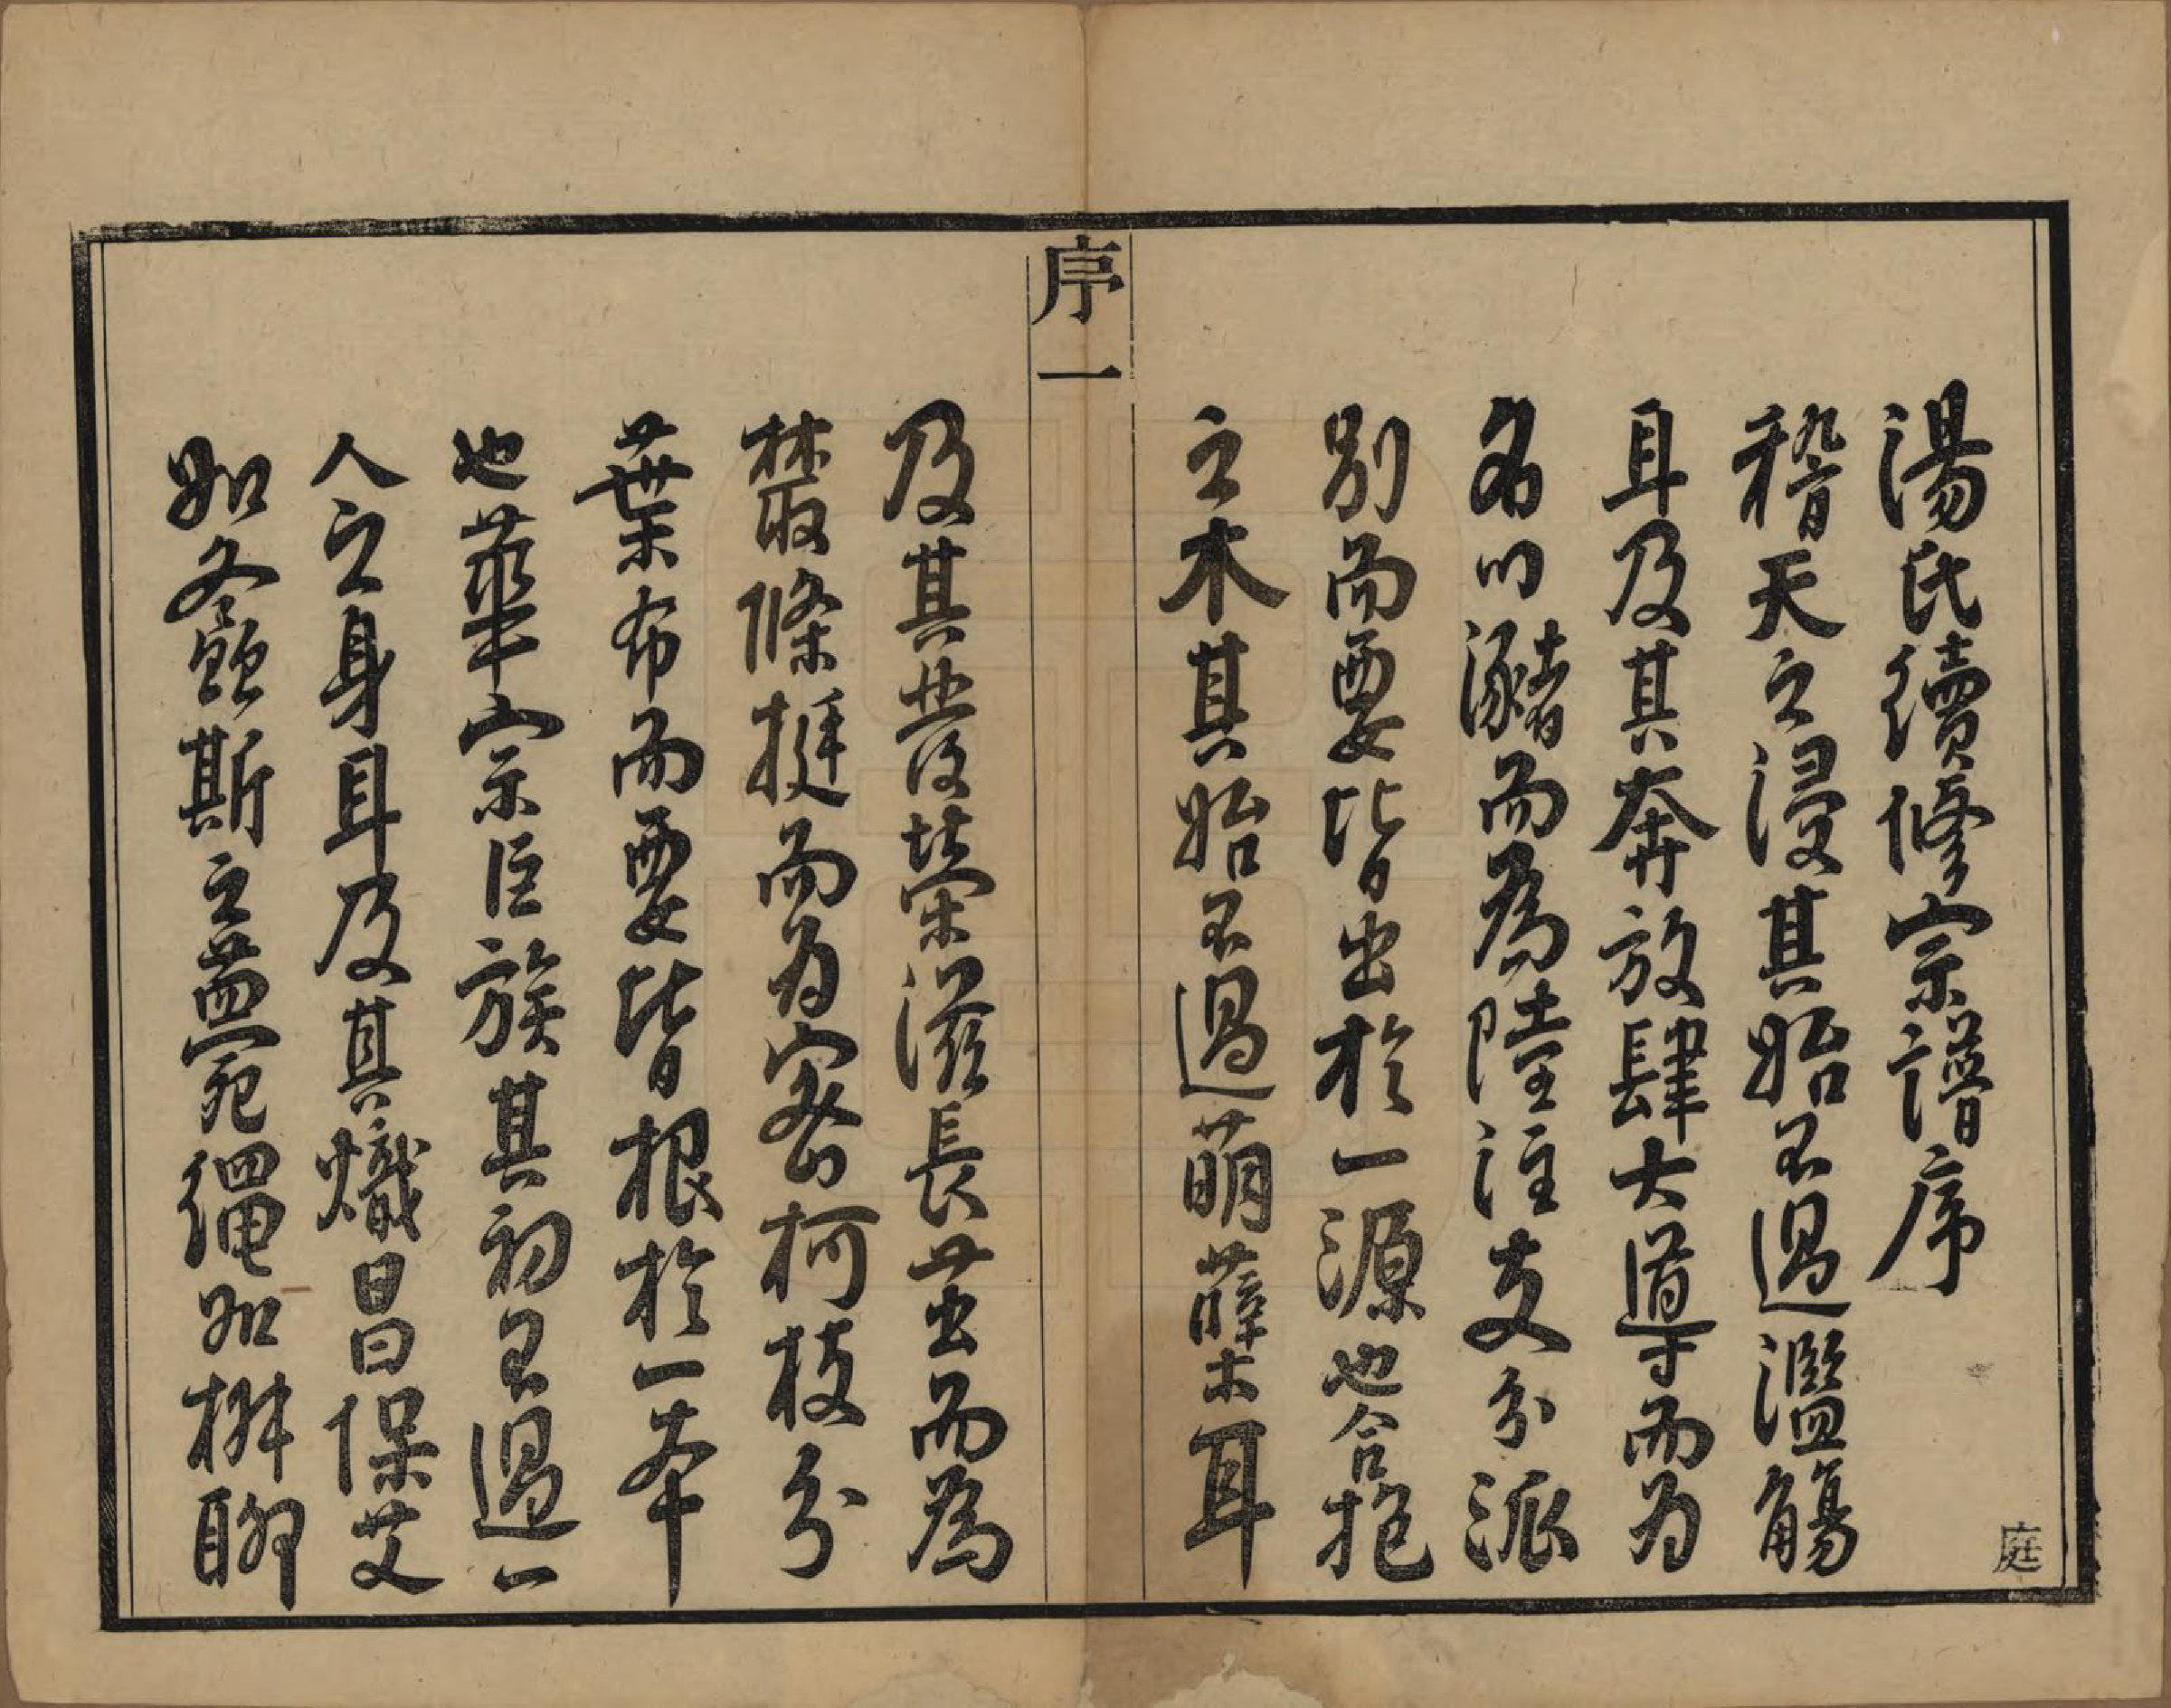 湯氏續修宗譜序
稽天之浸其始不過濫觴
耳及其奔放肆大導而为
名川瀦而為陸注支分派
別而要皆出於一源也合抱
之木其始不過萌蘖耳
序一
及其發榮滋長茁而為
藂條挺而为密柯枝分
葉布而要皆根於一本
也華宗臣族其初不過一
人之身耳及其熾昌保艾
如冬螽斯之蓋宛繩如椒聊
庭